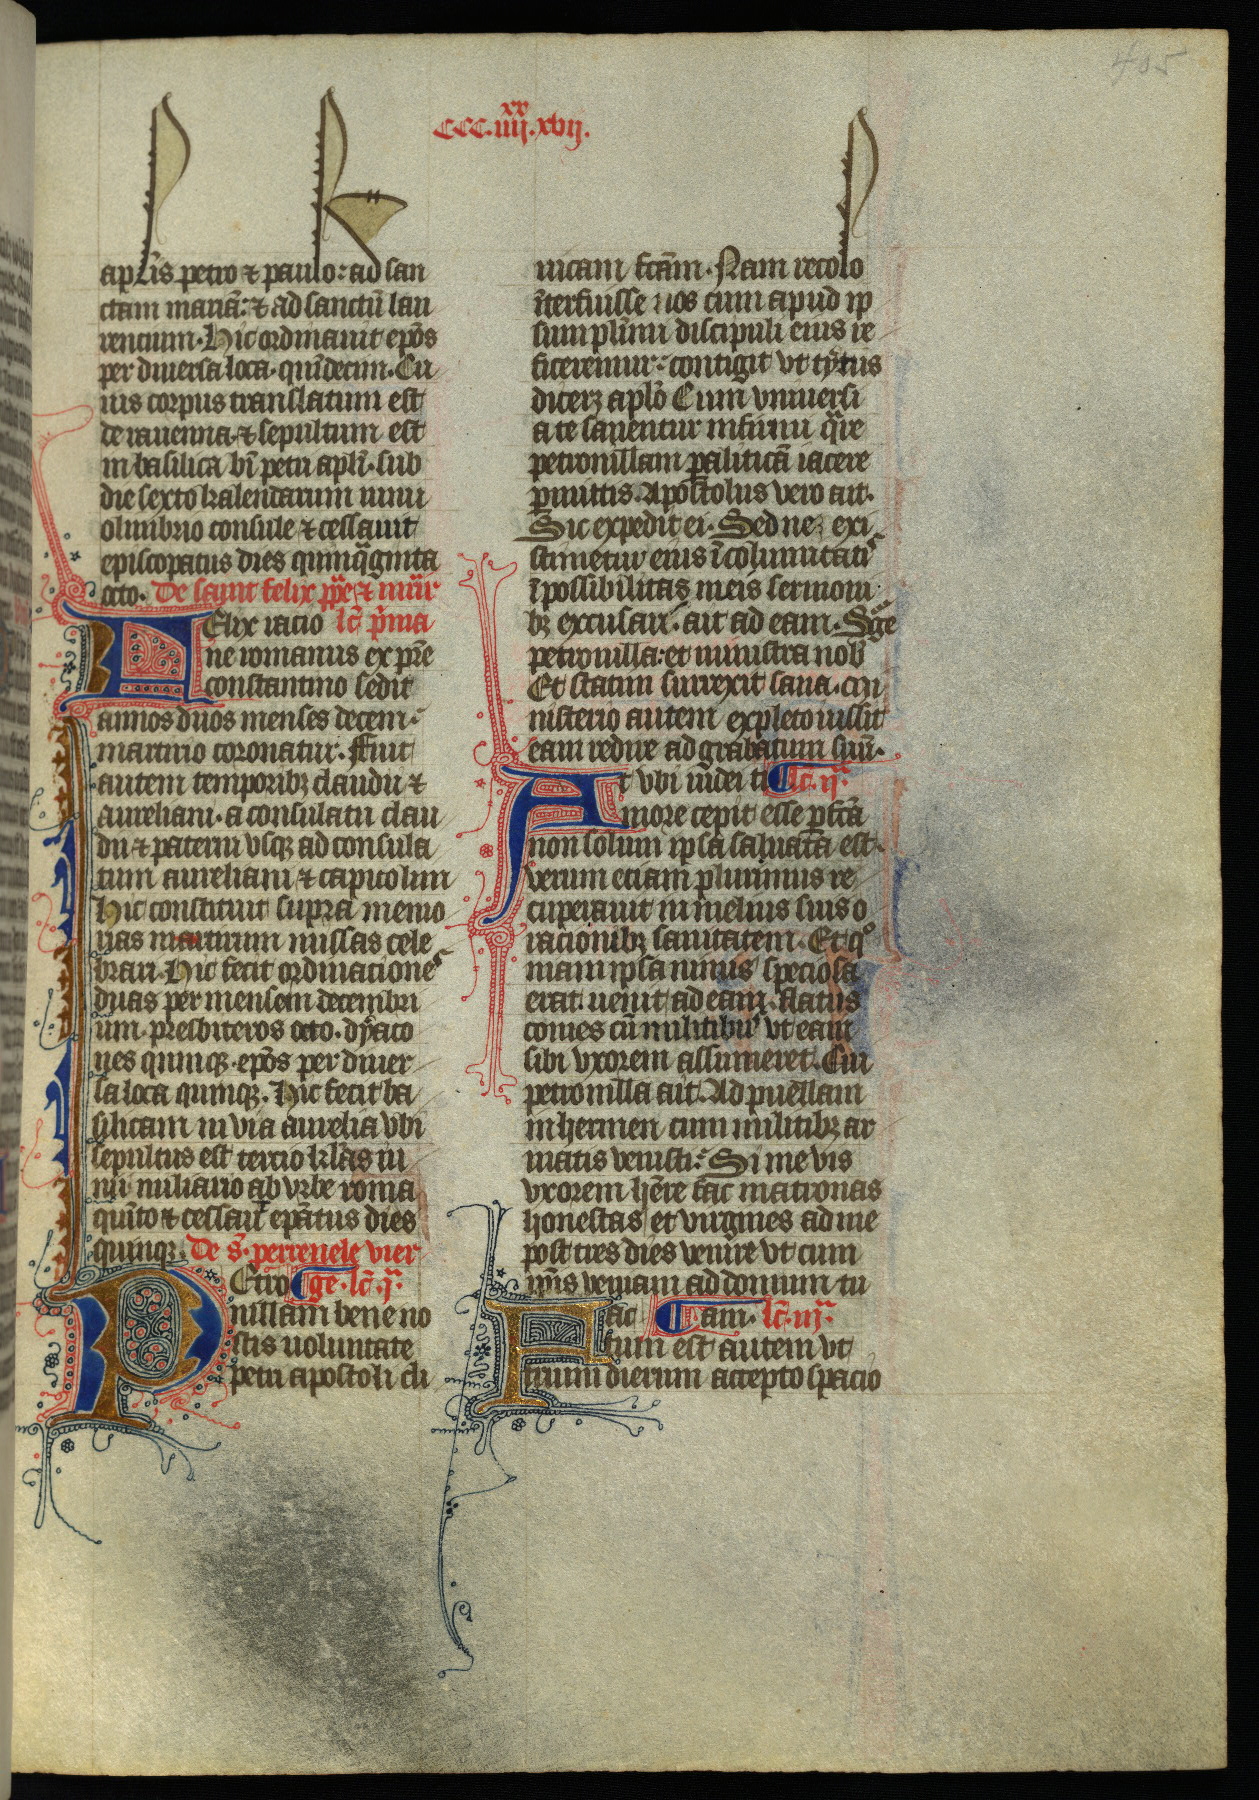 405
CCC.iiij.xvij.
xx
aplis petro ⁊ paulo: ad san
ctam mariā: ⁊ ad sanctū lau
rencium. Hic ordinauit ep̄os
per diuersa loca. quīdecim. Cu
ius corpus translatum est
de rauenna. ⁊ sepultum est
in basilica bī petri apli. sub
die sexto kalendarum iunii
olimbrio consule ⁊ cessauit
episcopatus dies quinq̄ginta
octo. De saint felix ppe ⁊ mr̄ir
Elix nacio lc̄ p̄ma
ne romanus ex pr̄e
constantino sedit
annos duos menses decem.
martirio coronatur. Fuit
autem temporibꝫ claudii ⁊
aureliani. a consulatu clau
dii ⁊ paterni vsqꝫ ad consula
tum aureliani ⁊ capitolini
Hic constituit supra memo
rias martirum missas cele
brari. Hic fecit ordinaciones
duas per mensem decembri
um. presbiteros octo. dyaco
nes quinqꝫ. ep̄os per diuer
sa loca quinqꝫ. Hic fecit ba
silicam in via aurelia vbi
sepultus est tercio kl̄as iu
nii miliario ab vrbe roma
quīto ⁊ cessauit ep̄atus dies
quinqꝫ. De s̄. perrenele vier
Etro ge. lc̄. j.ᵃ
nillam bene no
stis uoluntate
petri apostoli cli
nicam fc̄am. Nam recolo
īterfuisse uos cum apud ip
sum plīmi discipuli eius re
ficeremur: contigit vt tytus
dicerꝫ aplo Cum vniuersi
a te sanentur infirmi q̄re
petronillam paliticā iacere
permittis. Apostolus vero ait.
Sic expedit ei. Sed ne exi
stimetur eius īcolumitatis
īpossibilitas meis sermoni
bꝫ excusari. ait ad eam. Sg̈e
petronilla: et ministra nob
Et statim surrexit sana. mi
nisterio autem expleto iussit
eam redire ad grabatum suū.
At vbi in dei ti lc̄. ij.ᵃ
more cepit esse pfc̄a
non solum ipsa saluata est.
verum etiam plurimus re
cuperauit in melius suis o
racionibꝫ sanitatem. Et qº
niam ipsa nimis speciosa
erat. uenit ad eam flatus
comes cū militibus vt eam
sibi vxorem assumeret. Cui
petronilla ait. Ad puellam
inhermen cum militibꝫ ar
matis venisti: Si me vis
vxorem hēre fac matronas
honestas et virgines ad me
post tres dies venire vt cum
ip̄is veniam ad domum tu
Fac am. lc̄. iij.ᵃ
tum est autem vt
trium dierum accepto spacio